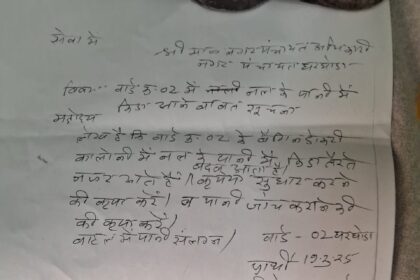 सेवा में
श्री मान नगर पंचायत अधिकारी
नगर पंचायत घरघोड़ा
विषय: वार्ड क्र 02 में नल के पानी में
किडा आने बाबत सूचना
महोदय
लेख है कि वार्ड क्र 02 के
कालोनी में नल के पानी में किडा तैरते
बदबू आता है
नजर आते हैं। कृपया सुधार करने
की कृपा करें। व पानी जांच कराने की
की कृपा करें।
बाटल में पानी संलग्न। वार्ड - 02 घरघोड़ा
प्रार्थी 19-3-25